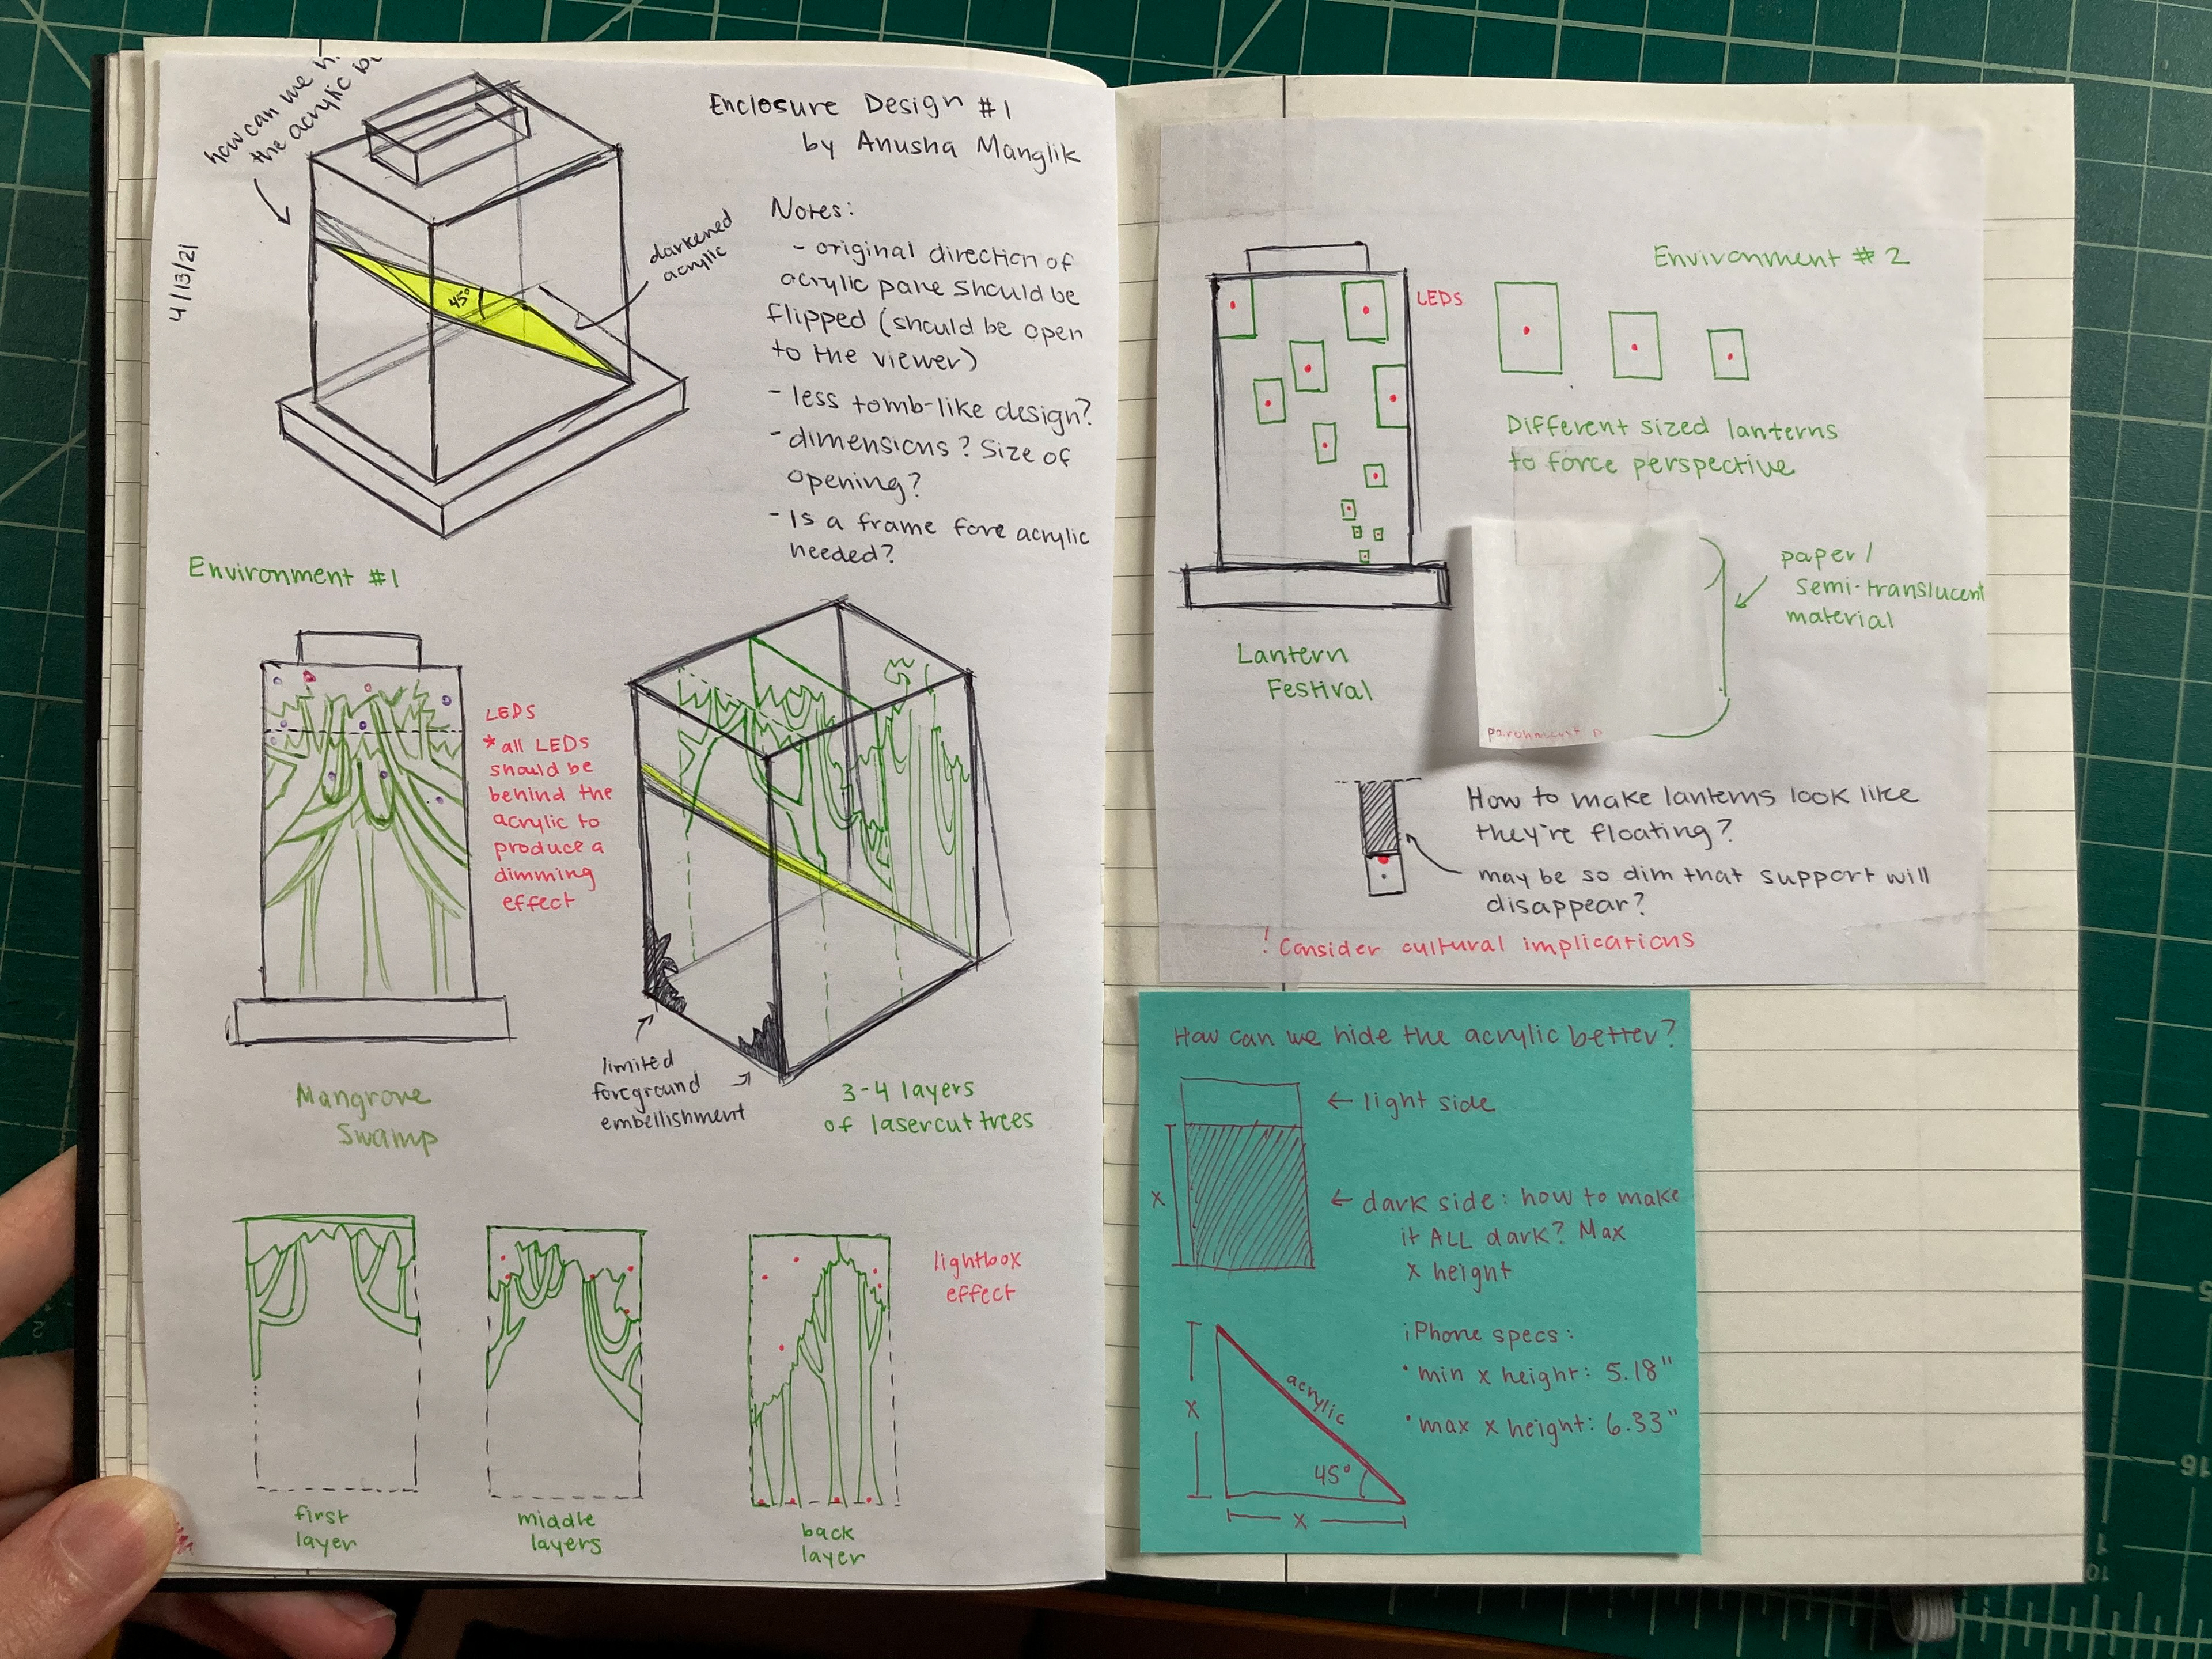 how can we
the acrylic
4/13/21
45°
darkened
acrylic
Enclosure Design #1
by Anusha Manglik
Notes:
- original direction of
acrylic pane should be
flipped (should be open
to the viewer)
- less tomb-like design?
- dimensions? Size of
opening?
- Is a frame fore acrylic
needed?
Environment #1
LEDS
* all LEDs
should be
behind the
acrylic to
produce a
dimming
effect
Mangrove
Swamp
limited
foreground
embellishment
3-4 layers
of lasercut trees
first
layer
middle
layers
back
layer
lightbox
effect
Environment #2
LEDS
Different sized lanterns
to force perspective
paper/
semi-translucent
material
Lantern
Festival
How to make lanterns look like
they're floating?
may be so dim that support will
disappear?
! Consider cultural implications
How can we hide the acrylic better?
← light side
x
← dark side: how to make
it ALL dark? Max
x height
iPhone specs:
• min x height: 5.18"
• max x height: 6.33"
acrylic
x
45°
x